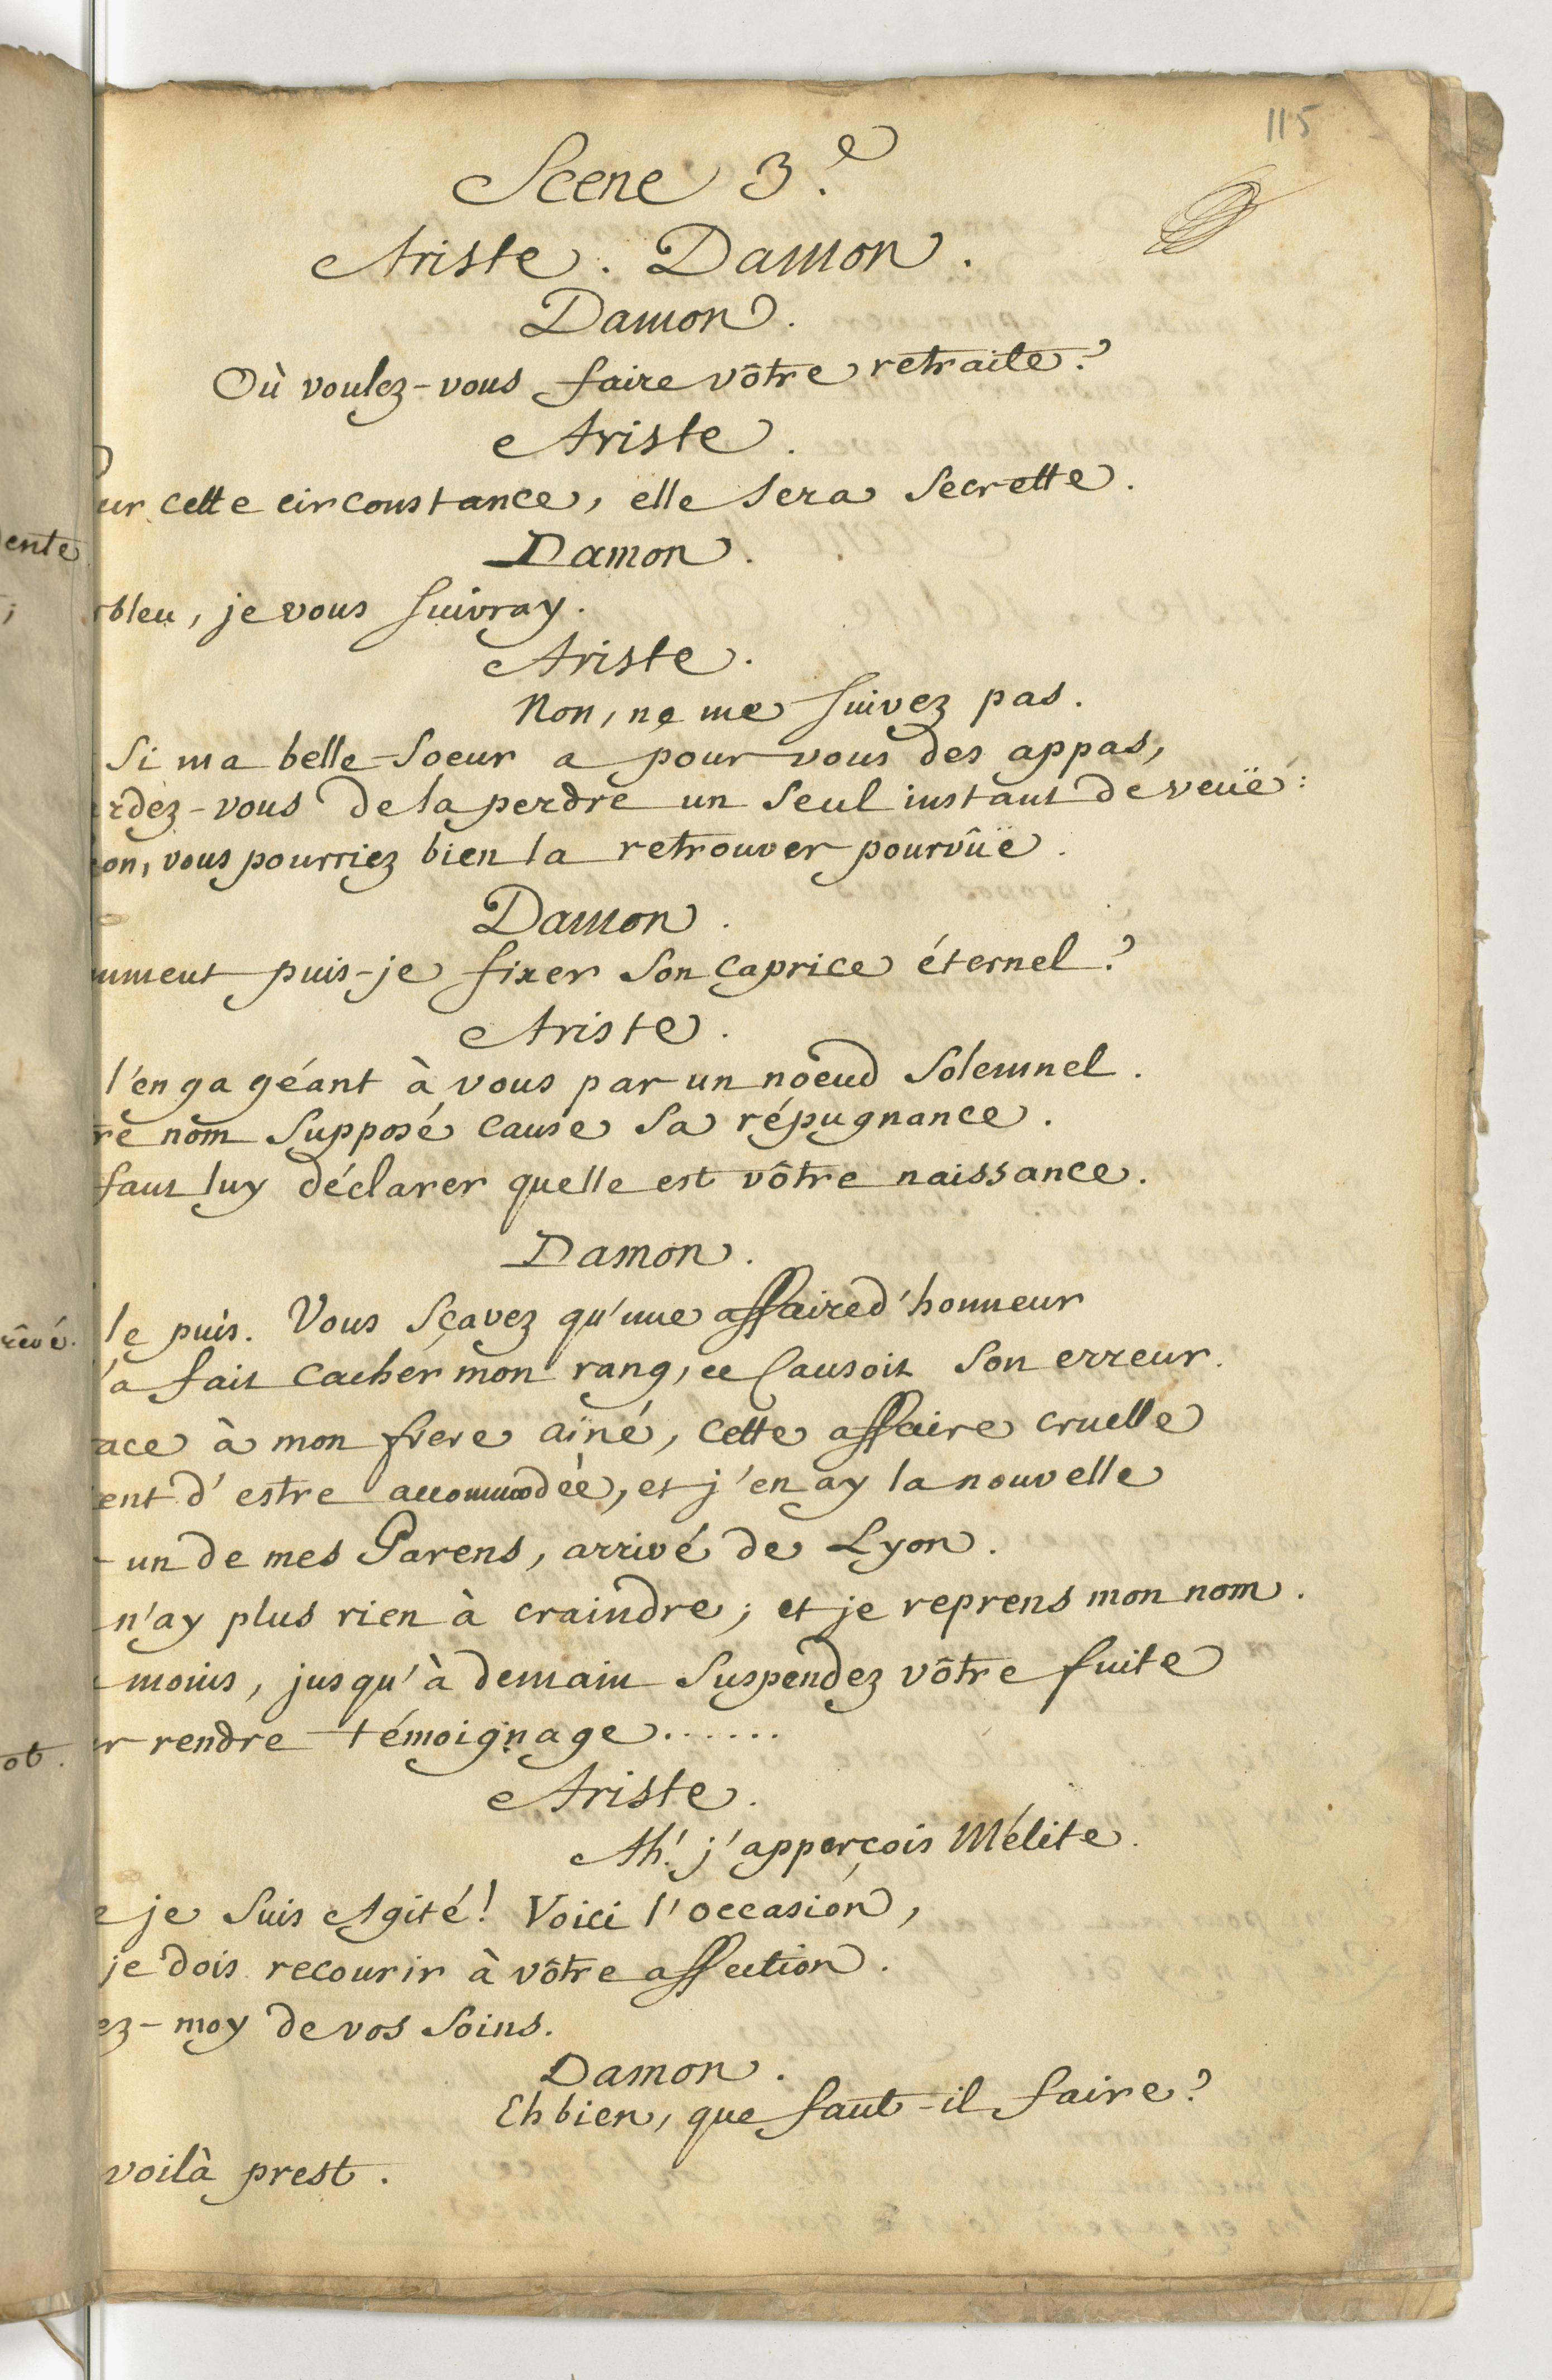 115
Scene 3.e
Ariste. Damon.
Damon.
Où voulez-vous faire vôtre retraite?
Ariste.
ur cette circonstance, elle sera secrette.
Damon.
rbleu, je vous suivray.
Ariste.
Non, ne me suivez pas.
Si ma belle-soeur a pour vous des appas,
rdez-vous de la perdre un seul instant de veüe:
on, vous pourriez bien la retrouver pourvûe.
Damon.
mment puis-je fixer son caprice éternel?
Ariste.
l'engagéant à vous par un noeud solemnel.
re nom supposé cause sa répugnance.
faut luy déclarer quelle est vôtre naissance.
Damon.
le puis. Vous sçavez qu'une affaire d'honneur
'a fait cacher mon rang, ce causoit son erreur.
ace à mon frere aîné, cette affaire cruelle
ent d'estre accommodée, et j'en ay la nouvelle
un de mes Parens, arrivé de Lyon.
n'ay plus rien à craindre; et je reprens mon nom.
moins, jusqu'à demain suspendez vôtre fuite
r rendre témoignage......
Ariste.
Ah! j'apperçois Mélite.
e je suis Agité! Voici l'occasion,
je dois recourir à vôtre affection.
ez-moy de vos soins.
Damon.
Eh bien, que faut-il faire?
voilà prest.
ente
;
rêvé.
ot.